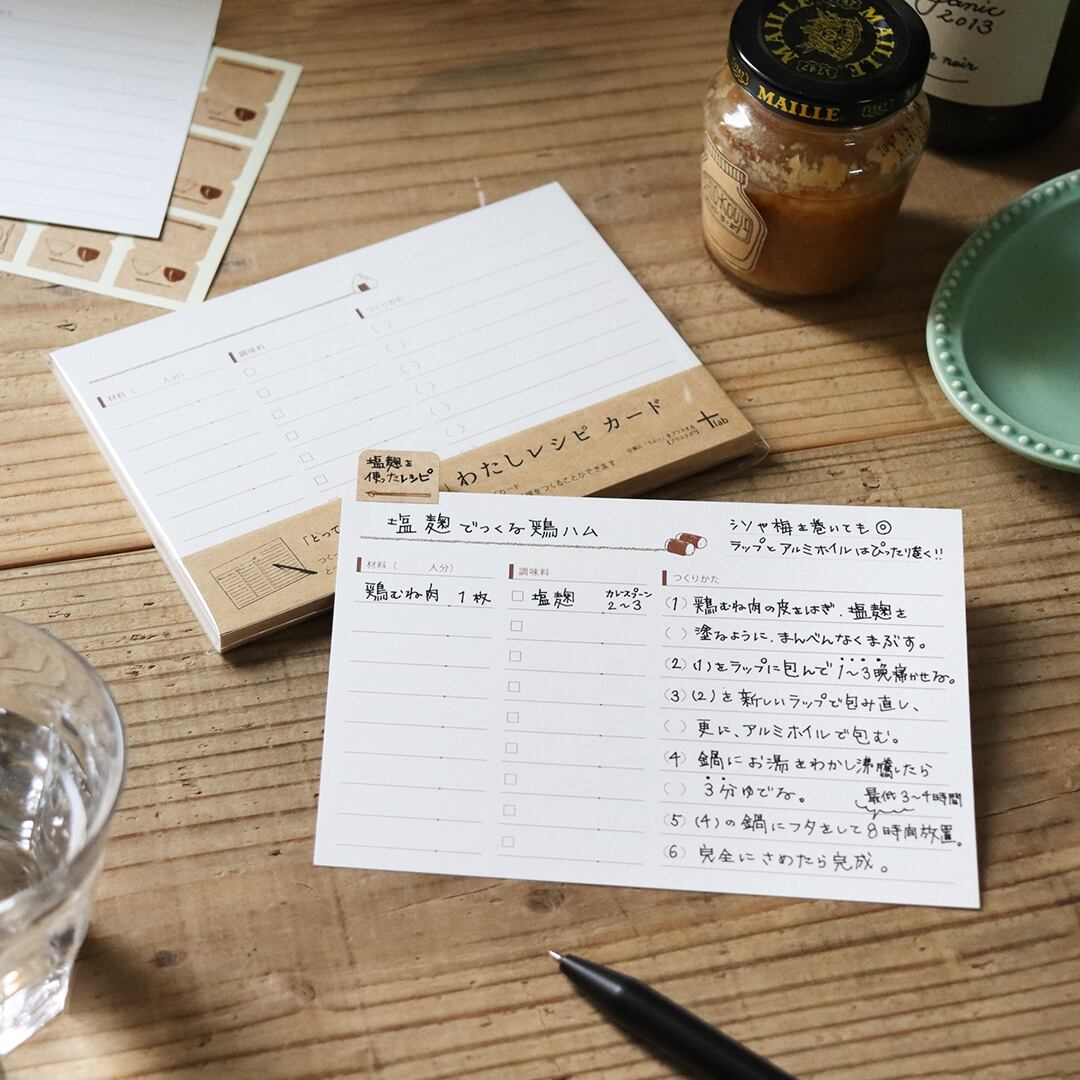 ganic
2013
noir
MAILLE MAILLE
MAILLE
調味料
つくりかた
材料（　　人分）
わたしレシピ カード
+lab
塩麹を
使ったレシピ
塩麹でつくる鶏ハム
シソや梅を巻いても◎
ラップとアルミホイルはぴったり巻く!!
材料（　　人分）
鶏むね肉 1枚
調味料
塩麹 カレースプーン
2〜3
つくりかた
(1) 鶏むね肉の皮をはぎ、塩麹を
( ) 塗るように、まんべんなくまぶす。
(2) (1)をラップに包んで1〜3晩寝かせる。
(3) (2)を新しいラップで包み直し、
( ) 更に、アルミホイルで包む。
(4) 鍋にお湯をわかし沸騰したら
( ) 3分ゆでる。
最低3〜4時間
(5) (4)の鍋にフタをして8時間放置。
(6) 完全にさめたら完成。